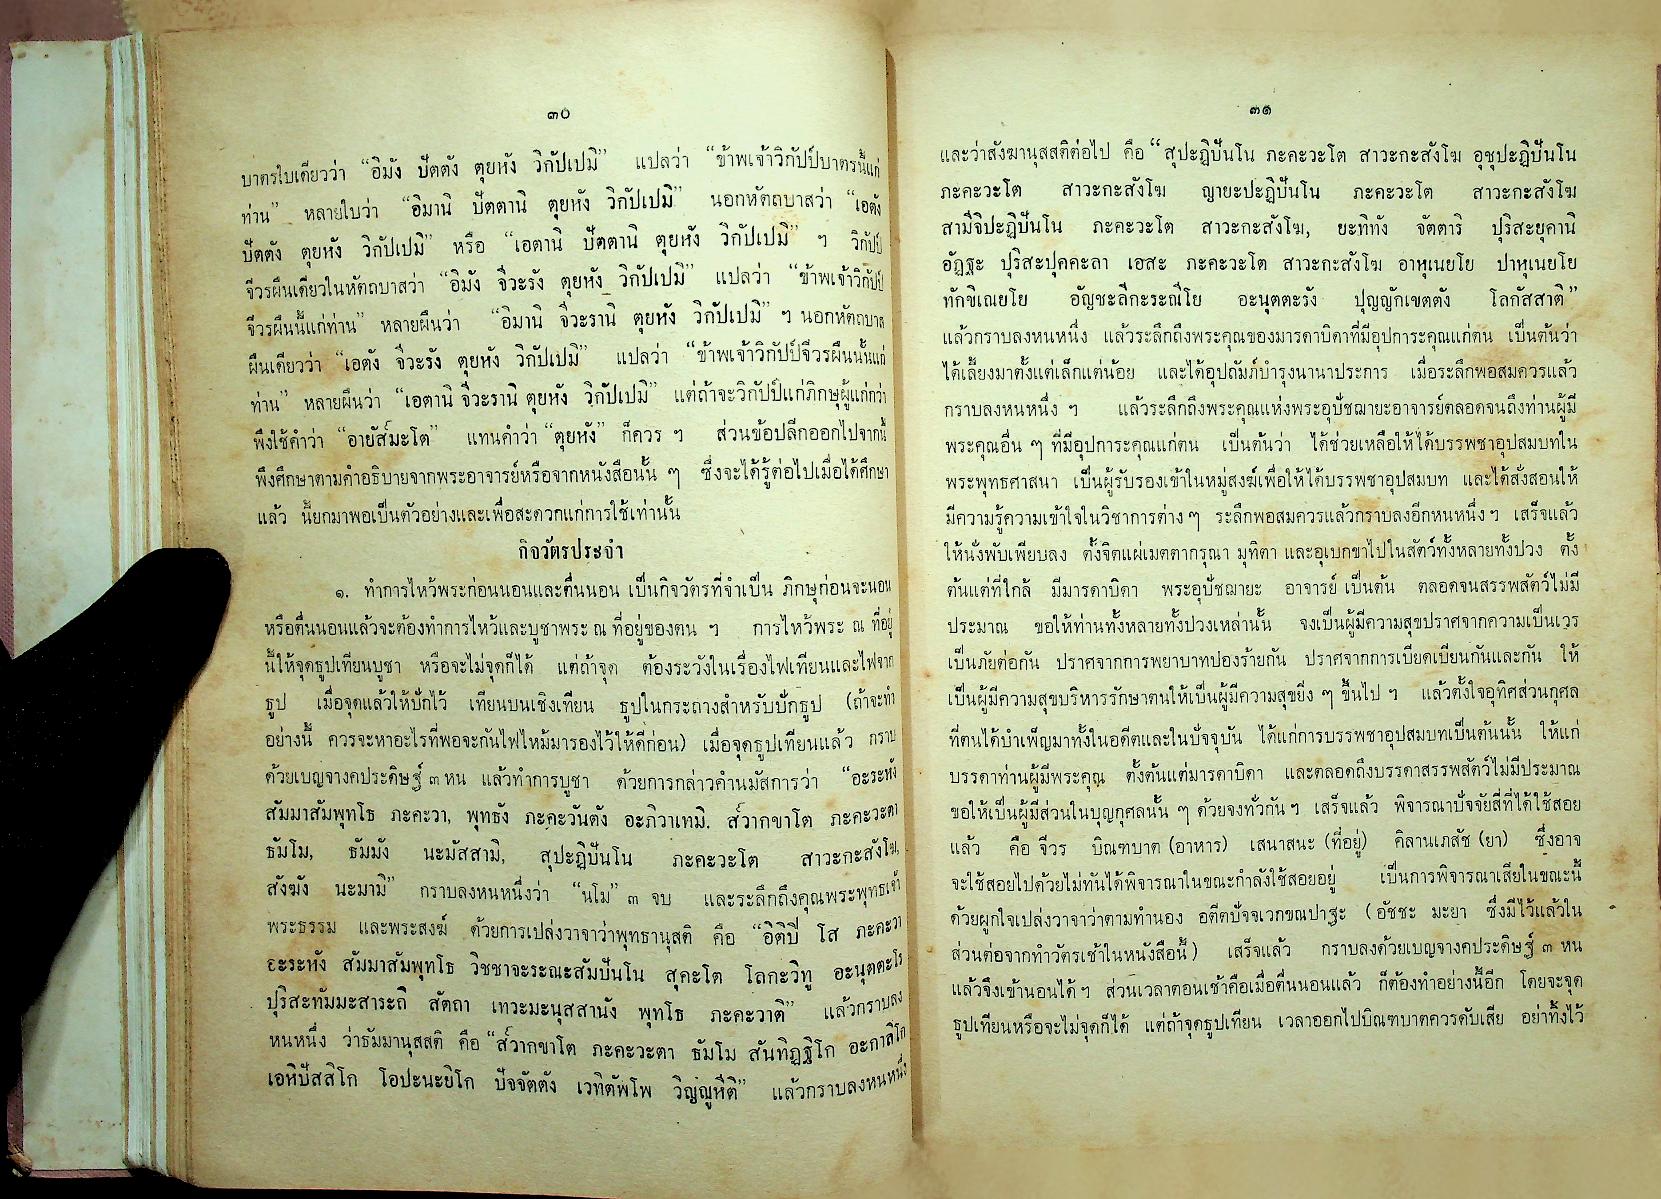 ๓๐
บาตรใบเดียวว่า “อิมัง ปัตตัง ตุยหัง วิกัปเปมิ” แปลว่า “ข้าพเจ้าวิกัปป์บาตรนี้แก่
ท่าน” หลายใบว่า “อิมานิ ปัตตานิ ตุยหัง วิกัปเปมิ” นอกหัตถบาสว่า “เอตัง
ปัตตัง ตุยหัง วิกัปเปมิ” หรือ “เอตานิ ปัตตานิ ตุยหัง วิกัปเปมิ” ฯ วิกัปป์
จีวรผืนเดียวในหัตถบาสว่า “อิมัง จีวะรัง ตุยหัง วิกัปเปมิ” แปลว่า “ข้าพเจ้าวิกัปป์
จีวรผืนนี้แก่ท่าน” หลายผืนว่า “อิมานิ จีวะรานิ ตุยหัง วิกัปเปมิ” ฯ นอกหัตถบาส
ผืนเดียวว่า “เอตัง จีวะรัง ตุยหัง วิกัปเปมิ” แปลว่า “ข้าพเจ้าวิกัปป์จีวรผืนนั้นแก่
ท่าน” หลายผืนว่า “เอตานิ จีวะรานิ ตุยหัง วิกัปเปมิ” แต่ถ้าจะวิกัปป์แก่ภิกษุผู้แก่กว่า
พึงใช้คำว่า “อายัส์มะโต” แทนคำว่า “ตุยหัง” ก็ควร ฯ ส่วนข้อปลีกออกไปจากนี้
พึงศึกษาตามคำอธิบายจากพระอาจารย์หรือจากหนังสือนั้น ๆ ซึ่งจะได้รู้ต่อไปเมื่อได้ศึกษา
แล้ว นี้ยกมาพอเป็นตัวอย่างและเพื่อสะดวกแก่การใช้เท่านั้น
กิจวัตรประจำ
๑. ทำการไหว้พระก่อนนอนและตื่นนอน เป็นกิจวัตรที่จำเป็น ภิกษุก่อนจะนอน
หรือตื่นนอนแล้วจะต้องทำการไหว้และบูชาพระ ณ ที่อยู่ของตน ฯ การไหว้พระ ณ ที่อยู่
นี้ให้จุดธูปเทียนบูชา หรือจะไม่จุดก็ได้ แต่ถ้าจุด ต้องระวังในเรื่องไฟเทียนและไฟจาก
ธูป เมื่อจุดแล้วให้ปักไว้ เทียนบนเชิงเทียน ธูปในกระถางสำหรับปักธูป (ถ้าจะทำ
อย่างนี้ ควรจะหาอะไรที่พอจะกันไฟไหม้มารองไว้ให้ดีก่อน) เมื่อจุดธูปเทียนแล้ว กราบ
ด้วยเบญจางคประดิษฐ์ ๓ หน แล้วทำการบูชา ด้วยการกล่าวคำนมัสการว่า “อะระหัง
สัมมาสัมพุทโธ ภะคะวา, พุทธัง ภะคะวันตัง อะภิวาเทมิ. ส๎วากขาโต ภะคะวะตา
ธัมโม, ธัมมัง นะมัสสามิ, สุปะฏิปันโน ภะคะวะโต สาวะกะสังโฆ,
สังฆัง นะมามิ” กราบลงหนหนึ่งว่า “นโม” ๓ จบ และระลึกถึงคุณพระพุทธเจ้า
พระธรรม และพระสงฆ์ ด้วยการเปล่งวาจาว่าพุทธานุสติ คือ “อิติปิ โส ภะคะวา
อะระหัง สัมมาสัมพุทโธ วิชชาจะระณะสัมปันโน สุคะโต โลกะวิทู อะนุตตะโร
ปุริสะทัมมะสาระถิ สัตถา เทวะมะนุสสานัง พุทโธ ภะคะวาติ” แล้วกราบลง
หนหนึ่ง ว่าธัมมานุสสติ คือ “ส๎วากขาโต ภะคะวะตา ธัมโม สันทิฏฐิโก อะกาลิโก
เอหิปัสสิโก โอปะนะยิโก ปัจจัตตัง เวทิตัพโพ วิญญูหีติ” แล้วกราบลงหนหนึ่ง
๓๑
และว่าสังฆานุสสติต่อไป คือ “สุปะฏิปันโน ภะคะวะโต สาวะกะสังโฆ อุชุปะฏิปันโน
ภะคะวะโต สาวะกะสังโฆ ญายะปะฏิปันโน ภะคะวะโต สาวะกะสังโฆ
สามีจิปะฏิปันโน ภะคะวะโต สาวะกะสังโฆ, ยะทิทัง จัตตาริ ปุริสะยุคานิ
อัฏฐะ ปุริสะปุคคะลา เอสะ ภะคะวะโต สาวะกะสังโฆ อาหุเนยโย ปาหุเนยโย
ทักขิเณยโย อัญชะลีกะระณีโย อะนุตตะรัง ปุญญักเขตตัง โลกัสสาติ”
แล้วกราบลงหนหนึ่ง แล้วระลึกถึงพระคุณของมารดาบิดาที่มีอุปการะคุณแก่ตน เป็นต้นว่า
ได้เลี้ยงมาตั้งแต่เล็กแต่น้อย และได้อุปถัมภ์บำรุงนานาประการ เมื่อระลึกพอสมควรแล้ว
กราบลงหนหนึ่ง ฯ แล้วระลึกถึงพระคุณแห่งพระอุปัชฌายะอาจารย์ตลอดจนถึงท่านผู้มี
พระคุณอื่น ๆ ที่มีอุปการะคุณแก่ตน เป็นต้นว่า ได้ช่วยเหลือให้ได้บรรพชาอุปสมบทใน
พระพุทธศาสนา เป็นผู้รับรองเข้าในหมู่สงฆ์เพื่อให้ได้บรรพชาอุปสมบท และได้สั่งสอนให้
มีความรู้ความเข้าใจในวิชาการต่าง ๆ ระลึกพอสมควรแล้วกราบลงอีกหนหนึ่ง ฯ เสร็จแล้ว
ให้นั่งพับเพียบลง ตั้งจิตแผ่เมตตากรุณา มุทิตา และอุเบกขาไปในสัตว์ทั้งหลายทั้งปวง ตั้ง
ต้นแต่ที่ใกล้ มีมารดาบิดา พระอุปัชฌายะ อาจารย์ เป็นต้น ตลอดจนสรรพสัตว์ไม่มี
ประมาณ ขอให้ท่านทั้งหลายทั้งปวงเหล่านั้น จงเป็นผู้มีความสุขปราศจากความเป็นเวร
เป็นภัยต่อกัน ปราศจากการพยาบาทปองร้ายกัน ปราศจากการเบียดเบียนกันและกัน ให้
เป็นผู้มีความสุขบริหารรักษาตนให้เป็นผู้มีความสุขยิ่ง ๆ ขึ้นไป ฯ แล้วตั้งใจอุทิศส่วนกุศล
ที่ตนได้บำเพ็ญมาทั้งในอดีตและในปัจจุบัน ได้แก่การบรรพชาอุปสมบทเป็นต้นนั้น ให้แก่
บรรดาท่านผู้มีพระคุณ ตั้งต้นแต่มารดาบิดา และตลอดถึงบรรดาสรรพสัตว์ไม่มีประมาณ
ขอให้เป็นผู้มีส่วนในบุญกุศลนั้น ๆ ด้วยจงทั่วกัน ฯ เสร็จแล้ว พิจารณาปัจจัยสี่ที่ได้ใช้สอย
แล้ว คือ จีวร บิณฑบาต (อาหาร) เสนาสนะ (ที่อยู่) คิลานเภสัช (ยา) ซึ่งอาจ
จะใช้สอยไปด้วยไม่ทันได้พิจารณาในขณะกำลังใช้สอยอยู่ เป็นการพิจารณาเสียในขณะนี้
ด้วยผูกใจเปล่งวาจาว่าตามทำนอง อตีตปัจจเวกขณปาฐะ (อัชชะ มะยา ซึ่งมีไว้แล้วใน
ส่วนต่อจากทำวัตรเช้าในหนังสือนี้) เสร็จแล้ว กราบลงด้วยเบญจางคประดิษฐ์ ๓ หน
แล้วจึงเข้านอนได้ ฯ ส่วนเวลาตอนเช้าคือเมื่อตื่นนอนแล้ว ก็ต้องทำอย่างนี้อีก โดยจะจุด
ธูปเทียนหรือจะไม่จุดก็ได้ แต่ถ้าจุดธูปเทียน เวลาออกไปบิณฑบาตควรดับเสีย อย่าทิ้งไว้